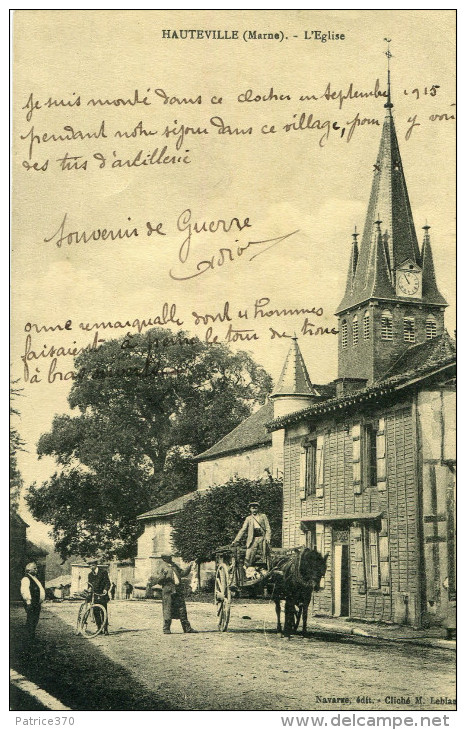 HAUTEVILLE (Marne). - L'Eglise
Je suis monté dans ce clocher en Septembre 1915
pendant notre séjour dans ce village, pour y voir
des tirs d'artillerie
Souvenir de Guerre
orme remarquable dont 4 hommes
faisaient à peine le tour du tronc
à bras
Navarze, édit. - Cliché M. Leblan
Patrice370